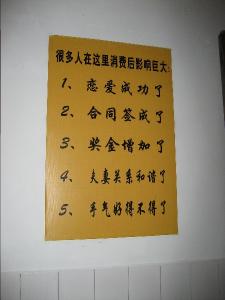 很多人在这里消费后影响巨大:
1、恋爱成功了
2、合同签成了
3、奖金增加了
4、夫妻关系和谐了
5、手气好得不得了